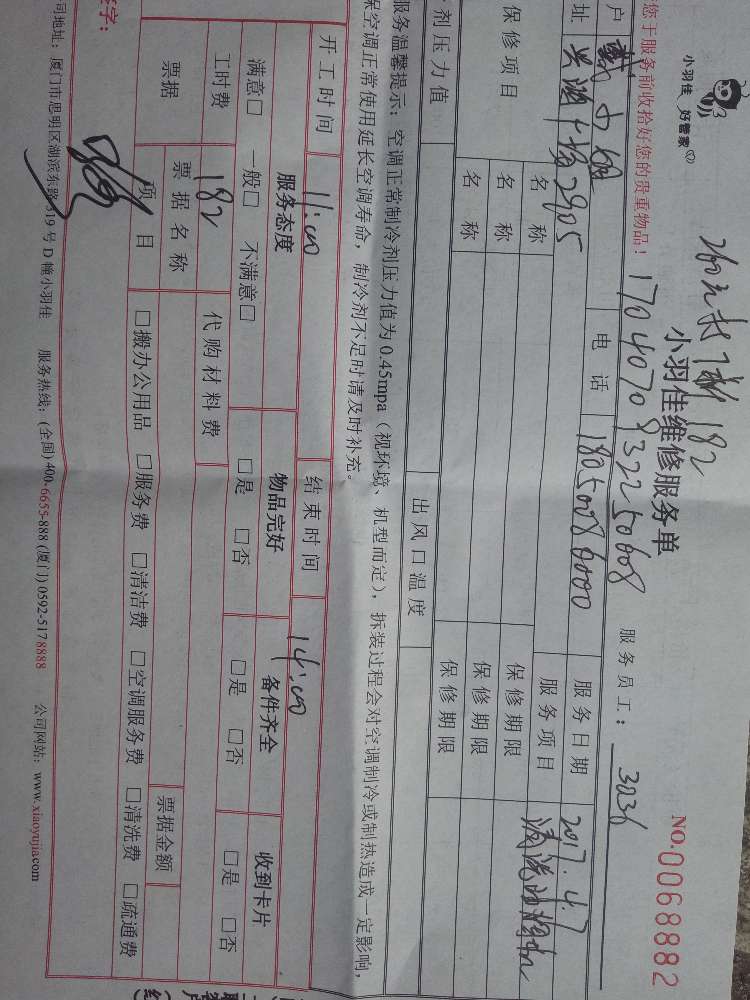 小羽佳 好管家
260元打7折 182
小羽佳维修服务单
NO.0068882
您于服务前收拾好您的贵重物品！
170407093225 0608
服务员工： 3036
户
电话 18050086000
服务日期 2017.4.7
址 2905
服务项目 清洗油烟机
保修项目
名称 保修期限
名称 保修期限
名称 保修期限
剂压力值 出风口温度
服务温馨提示：空调正常制冷剂压力值为0.45mpa（视环境、机型而定），拆装过程会对空调制冷或制热造成一定影响，
保空调正常使用延长空调寿命，制冷剂不足时请及时补充。
开工时间 11:00 结束时间 14:00
服务态度 物品完好 备件齐全 收到卡片
满意□ 一般□ 不满意□ □是 □否 □是 □否 □是 □否
工时费 182 代购材料费
票据 票据名称 票据金额
项目 □搬办公用品 □服务费 □清洁费 □空调服务费 □清洗费 □疏通费
签字：
司地址：厦门市思明区湖滨东路319号D幢小羽佳 服务热线：(全国) 400-6655-888 (厦门) 0592-5178888 公司网站：www.xiaoyujia.com